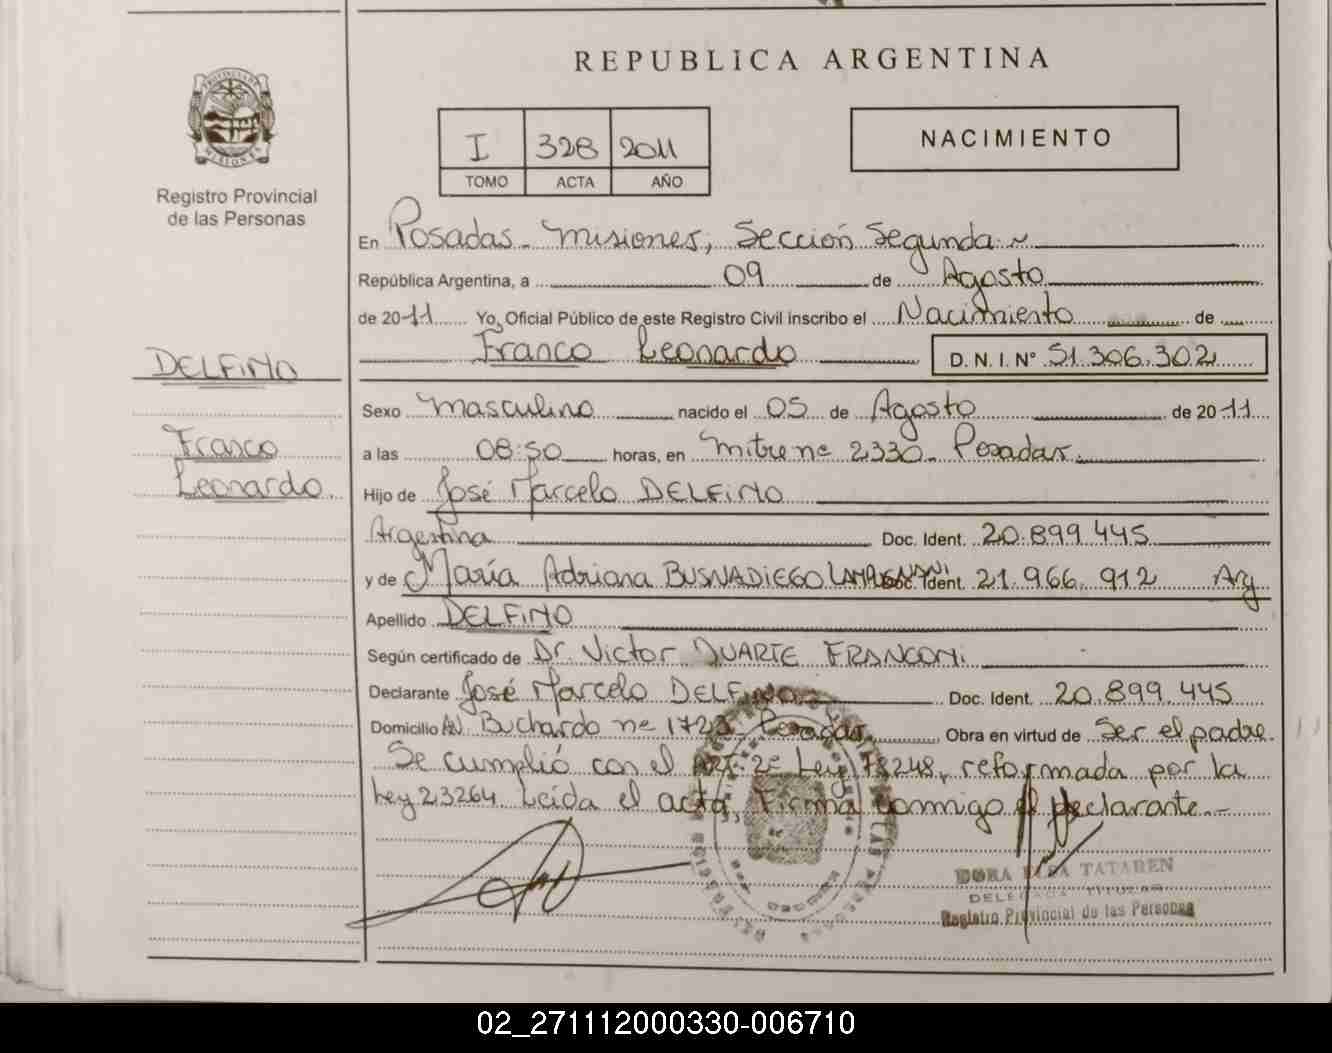 REPUBLICA ARGENTINA
Registro Provincial
de las Personas
I 328 2011
TOMO ACTA AÑO
NACIMIENTO
En Posadas - Misiones, Sección Segunda
República Argentina, a 09 de Agosto
de 2011 Yo, Oficial Público de este Registro Civil inscribo el Nacimiento de
Franco Leonardo D. N. I. N° 51.306.302
DELFINO
Franco
Leonardo.
Sexo Masculino nacido el 05 de Agosto de 2011
a las 08:50 horas, en Mitre nº 2330 - Posadas.
Hijo de José Marcelo DELFINO
Argentina Doc. Ident. 20.899.445
y de María Adriana BUSNADIEGO Doc. Ident. 21.966.912 Arg
Apellido DELFINO
Según certificado de Dr. Victor DUARTE FRANCONI
Declarante José Marcelo DELFINO Doc. Ident. 20.899.445
Domicilio Av. Buchardo nº 1723 Posadas Obra en virtud de Ser el padre.
Se cumplió con el ART. 2º Ley 18248, reformada por la
Ley 23264. Leída el acta, Firma conmigo el declarante.-
DORA TATAREN
DELEGADA TITULAR
Registro Provincial de las Personas
02_271112000330-006710